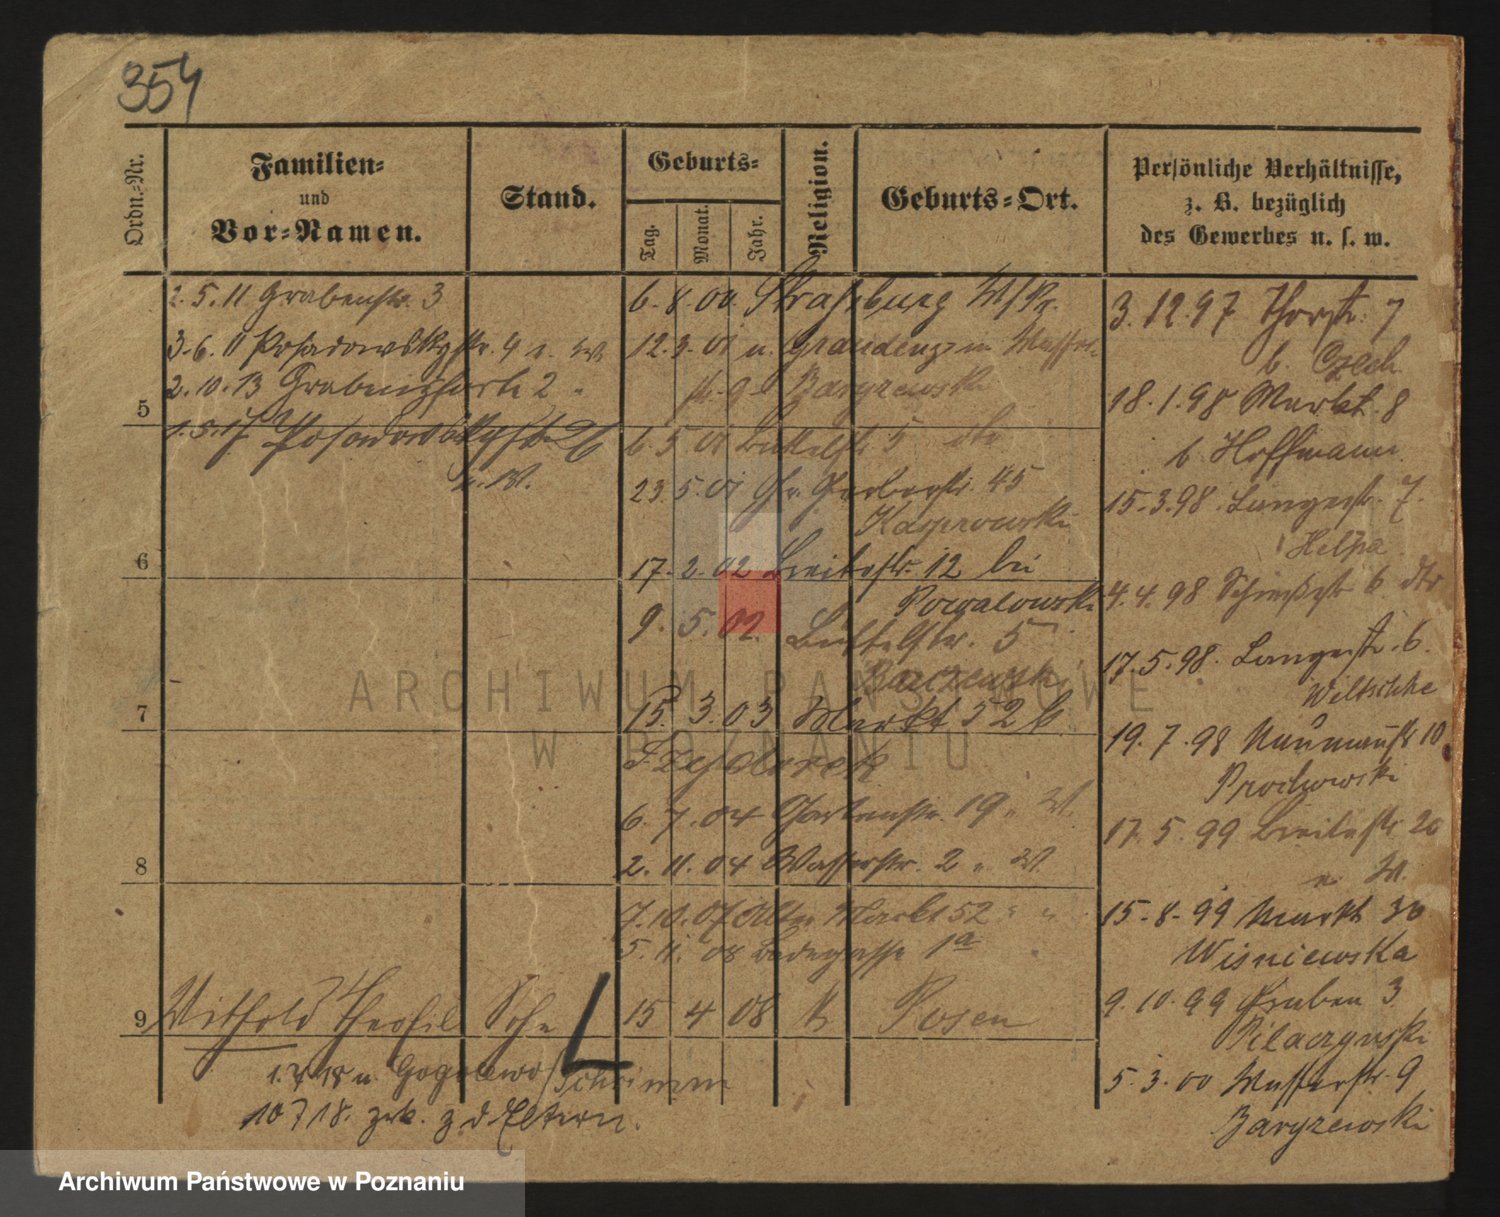 354
Ordn.-Nr.
Familien-
und
Vor-Namen.
Stand.
Geburts-
Tag.
Monat.
Jahr.
Religion.
Geburts-Ort.
Persönliche Verhältnisse,
z. B. bezüglich
des Gewerbes u. s. w.
2.5.11 Grabenstr. 3
3.6.11 Posadowskystr. 9
2.10.13 2
1.5.17 Posadowskystr.
6.8.00. Strasburg W/Pr.
12.3.01 u. Graudenz in
9 Baryzewski
6.5.01 Büttelstr. 5
23.5.01 Gr. Gerberstr. 45
Kasprowski
17.2.02 Breitestr. 12 bei
Powalowski
9.5.02. Büttelstr. 5
Barczewski
15.3.03 Markt 52 b
6.7.04 Gartenstr. 19
2.11.04 Wasserstr. 2
7.10.07 Alter Markt 52
5.11.08 1a
3.12.97 Thorstr. 7
b. Czech
18.1.98 Markt 8
b Hoffmann
15.3.98. Langestr. 7.
Helpa
4.4.98 6
17.5.98. Langestr. 6.
Wiltschke
19.7.98 Naumannstr 10
17.5.99 Breitestr 20
15.8.99 Markt 30
Wisniewska
9.10.99 Graben 3
Pilaczynski
5.3.00 Wasserstr. 9
Baryzewski
5
6
7
8
9 Withold Theofil Sohn 15 4 08 k Posen
1.7.18 n. Gogolewo/Schrimm
10 7 18. zrk. z d Eltern.
ARCHIWUM PAŃSTWOWE
W POZNANIU
Archiwum Państwowe w Poznaniu